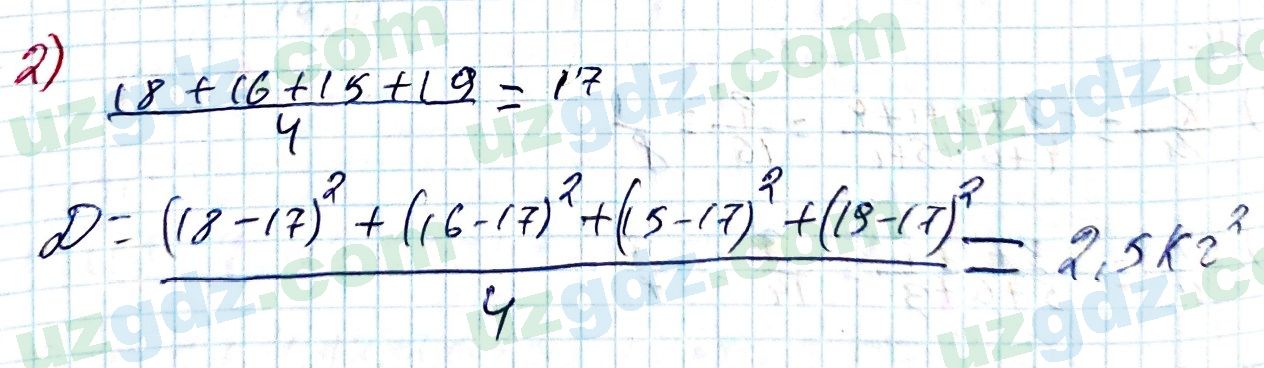 2)
18+16+15+19 / 4 = 17
D = (18-17)² + (16-17)² + (15-17)² + (19-17)² / 4 = 2,5 кг²
uzgdz.com uzgdz.com uzgdz.com
uzgdz.com uzgdz.com uzgdz.com